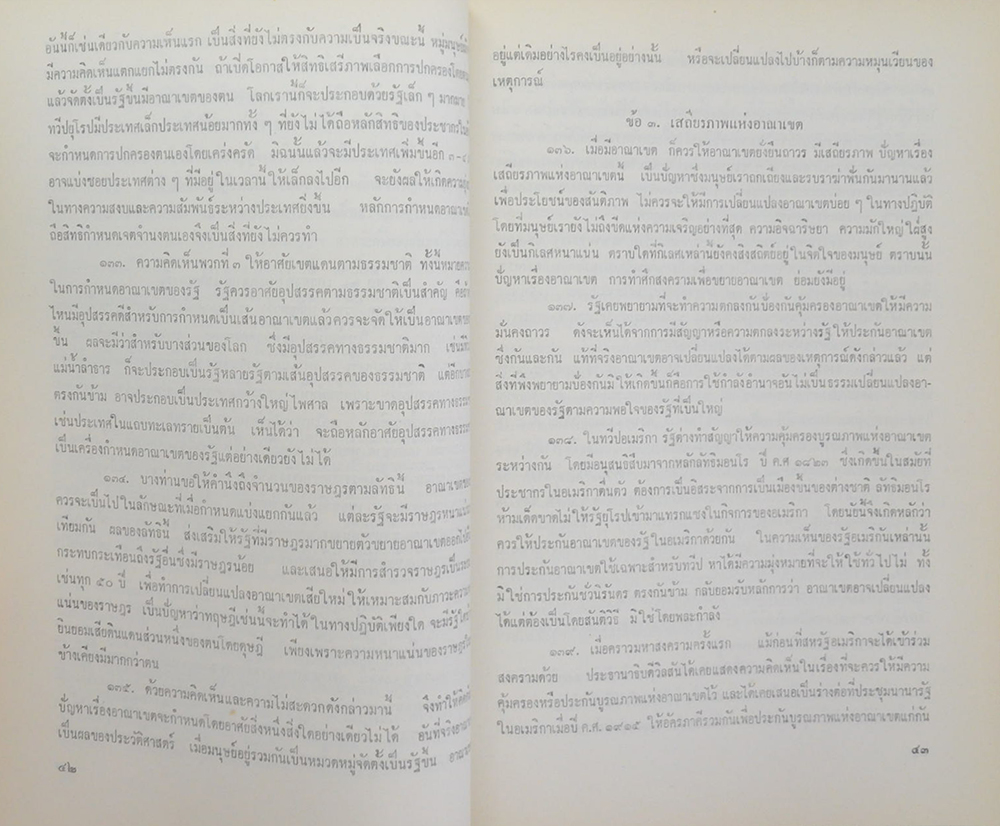 อันนี้ก็เช่นเดียวกับความเห็นแรก เป็นสิ่งที่ยังไม่ตรงกับความเป็นจริงขณะนี้ หมู่มนุษย์
มีความคิดเห็นแตกแยกไม่ตรงกัน ถ้าเปิดโอกาสให้สิทธิเสรีภาพเลือกการปกครองโดย
แล้วจัดตั้งเป็นรัฐขึ้นมีอาณาเขตของตน โลกเรานี้ก็จะประกอบด้วยรัฐเล็ก ๆ มากมาย
ทวีปยุโรปมีประเทศเล็กประเทศน้อยมากทั้ง ๆ ที่ยังไม่ได้ถือหลักสิทธิของประชากร
จะกำหนดการปกครองตนเองโดยเคร่งครัด มิฉนั้นแล้วจะมีประเทศเพิ่มขึ้นอีก ๓-๔
อาจแบ่งซอยประเทศต่าง ๆ ที่มีอยู่ในเวลานี้ให้เล็กลงไปอีก จะยังผลให้เกิดความ
ในทางความสงบและความสัมพันธ์ระหว่างประเทศยิ่งขึ้น หลักการกำหนดอาณา
ถือสิทธิกำหนดเจตจำนงตนเองจึงเป็นสิ่งที่ยังไม่ควรทำ
๑๓๓. ความคิดเห็นพวกที่ ๓ ให้อาศัยเขตแดนตามธรรมชาติ ทั้งนี้หมาย
ในการกำหนดอาณาเขตของรัฐ รัฐควรอาศัยอุปสรรคตามธรรมชาติเป็นสำคัญ คือ
ไหนมีอุปสรรคดีสำหรับการกำหนดเป็นเส้นอาณาเขตแล้วควรจะจัดให้เป็นอาณาเขต
ขึ้น ผลจะมีว่าสำหรับบางส่วนของโลก ซึ่งมีอุปสรรคทางธรรมชาติมาก เช่น
แม่น้ำลำธาร ก็จะประกอบเป็นรัฐหลายรัฐตามเส้นอุปสรรคของธรรมชาติ แต่อีก
ตรงกันข้าม อาจประกอบเป็นประเทศกว้างใหญ่ไพศาล เพราะขาดอุปสรรคทาง
เช่นประเทศในแถบทะเลทรายเป็นต้น เห็นได้ว่า จะถือหลักอาศัยอุปสรรคทาง
เป็นเครื่องกำหนดอาณาเขตของรัฐแต่อย่างเดียวยังไม่ได้
๑๓๔. บางท่านขอให้คำนึงถึงจำนวนของราษฎรตามลัทธินี้ อาณาเขต
ควรจะเป็นไปในลักษณะที่เมื่อกำหนดแบ่งแยกกันแล้ว แต่ละรัฐจะมีราษฎรหนา
เทียมกัน ผลของลัทธินี้ ส่งเสริมให้รัฐที่มีราษฎรมากขยายตัวขยายอาณาเขตออกไป
กระทบกระเทือนถึงรัฐอื่นซึ่งมีราษฎรน้อย และเสนอให้มีการสำรวจราษฎรเป็น
เช่นทุก ๕๐ ปี เพื่อทำการเปลี่ยนแปลงอาณาเขตเสียใหม่ ให้เหมาะสมกับภาวะความ
แน่นของราษฎร เป็นปัญหาว่าทฤษฎีเช่นนี้จะทำได้ในทางปฏิบัติเพียงใด จะมีรัฐ
ยินยอมเสียดินแดนส่วนหนึ่งของตนโดยดุษฎี เพียงเพราะความหนาแน่นของราษฎร
ข้างเคียงมีมากกว่าตน
๑๓๕. ด้วยความคิดเห็นและความไม่สะดวกดังกล่าวมานี้ จึงทำให้
ปัญหาเรื่องอาณาเขตจะกำหนดโดยอาศัยสิ่งหนึ่งสิ่งใดอย่างเดียวไม่ได้ อันที่จริง
เป็นผลของประวัติศาสตร์ เมื่อมนุษย์อยู่รวมกันเป็นหมวดหมู่จัดตั้งเป็นรัฐขึ้น
๔๒
อยู่แต่เดิมอย่างไรคงเป็นอยู่อย่างนั้น หรือจะเปลี่ยนแปลงไปบ้างก็ตามความหมุนเวียนของ
เหตุการณ์
ข้อ ๓. เสถียรภาพแห่งอาณาเขต
๑๓๖. เมื่อมีอาณาเขต ก็ควรให้อาณาเขตยั่งยืนถาวร มีเสถียรภาพ ปัญหาเรื่อง
เสถียรภาพแห่งอาณาเขตนี้ เป็นปัญหาซึ่งมนุษย์เราถกเถียงและรบราฆ่าฟันกันมานานแล้ว
เพื่อประโยชน์ของสันติภาพ ไม่ควรจะให้มีการเปลี่ยนแปลงอาณาเขตบ่อย ๆ ในทางปฏิบัติ
โดยที่มนุษย์เรายังไม่ถึงขีดแห่งความเจริญอย่างที่สุด ความอิจฉาริษยา ความมักใหญ่ใฝ่สูง
ยังเป็นกิเลศหนาแน่น ตราบใดที่กิเลศเหล่านี้ยังคงสิงสถิตย์อยู่ในจิตใจของมนุษย์ ตราบนั้น
ปัญหาเรื่องอาณาเขต การทำศึกสงครามเพื่อขยายอาณาเขต ย่อมยังมีอยู่
๑๓๗. รัฐเคยพยายามที่จะทำความตกลงกันป้องกันคุ้มครองอาณาเขตให้มีความ
มั่นคงถาวร ดังจะเห็นได้จากการมีสัญญาหรือความตกลงระหว่างรัฐ ให้ประกันอาณาเขต
ซึ่งกันและกัน แท้ที่จริงอาณาเขตอาจเปลี่ยนแปลงได้ตามผลของเหตุการณ์ดังกล่าวแล้ว แต่
สิ่งที่พึงพยายามป้องกันมิให้เกิดขึ้นก็คือการใช้กำลังอำนาจอันไม่เป็นธรรมเปลี่ยนแปลงอา-
ณาเขตของรัฐตามความพอใจของรัฐที่เป็นใหญ่
๑๓๘. ในทวีปอเมริกา รัฐต่างทำสัญญาให้ความคุ้มครองบูรณภาพแห่งอาณาเขต
ระหว่างกัน โดยมีอนุสนธิสืบมาจากหลักลัทธิมอนโร ปี ค.ศ ๑๘๒๓ ซึ่งเกิดขึ้นในสมัยที่
ประชากรในอเมริกาตื่นตัว ต้องการเป็นอิสระจากการเป็นเมืองขึ้นของต่างชาติ ลัทธิมอนโร
ห้ามเด็ดขาดไม่ให้รัฐยุโรปเข้ามาแทรกแซงในกิจการของอเมริกา โดยนัยนี้จึงเกิดหลักว่า
ควรให้ประกันอาณาเขตของรัฐในอเมริกาด้วยกัน ในความเห็นของรัฐอเมริกันเหล่านั้น
การประกันอาณาเขตใช้เฉพาะสำหรับทวีป หาได้มีความมุ่งหมายที่จะให้ใช้ทั่วไปไม่ ทั้ง
มิใช่การประกันชั่วนิรันดร ตรงกันข้าม กลับยอมรับหลักการว่า อาณาเขตอาจเปลี่ยนแปลง
ได้แต่ต้องเป็นโดยสันติวิธี มิใช่โดยพละกำลัง
๑๓๙. เมื่อคราวมหาสงครามครั้งแรก แม้ก่อนที่สหรัฐอเมริกาจะได้เข้าร่วม
สงครามด้วย ประธานาธิบดีวิลสันได้เคยแสดงความคิดเห็นในเรื่องที่จะควรให้มีความ
คุ้มครองหรือประกันบูรณภาพแห่งอาณาเขตไว้ และได้เคยเสนอเป็นร่างต่อที่ประชุมนานารัฐ
ในอเมริกาเมื่อปี ค.ศ. ๑๙๑๕ ให้อัครภาคีร่วมกันเพื่อประกันบูรณภาพแห่งอาณาเขตแก่กัน
๔๓